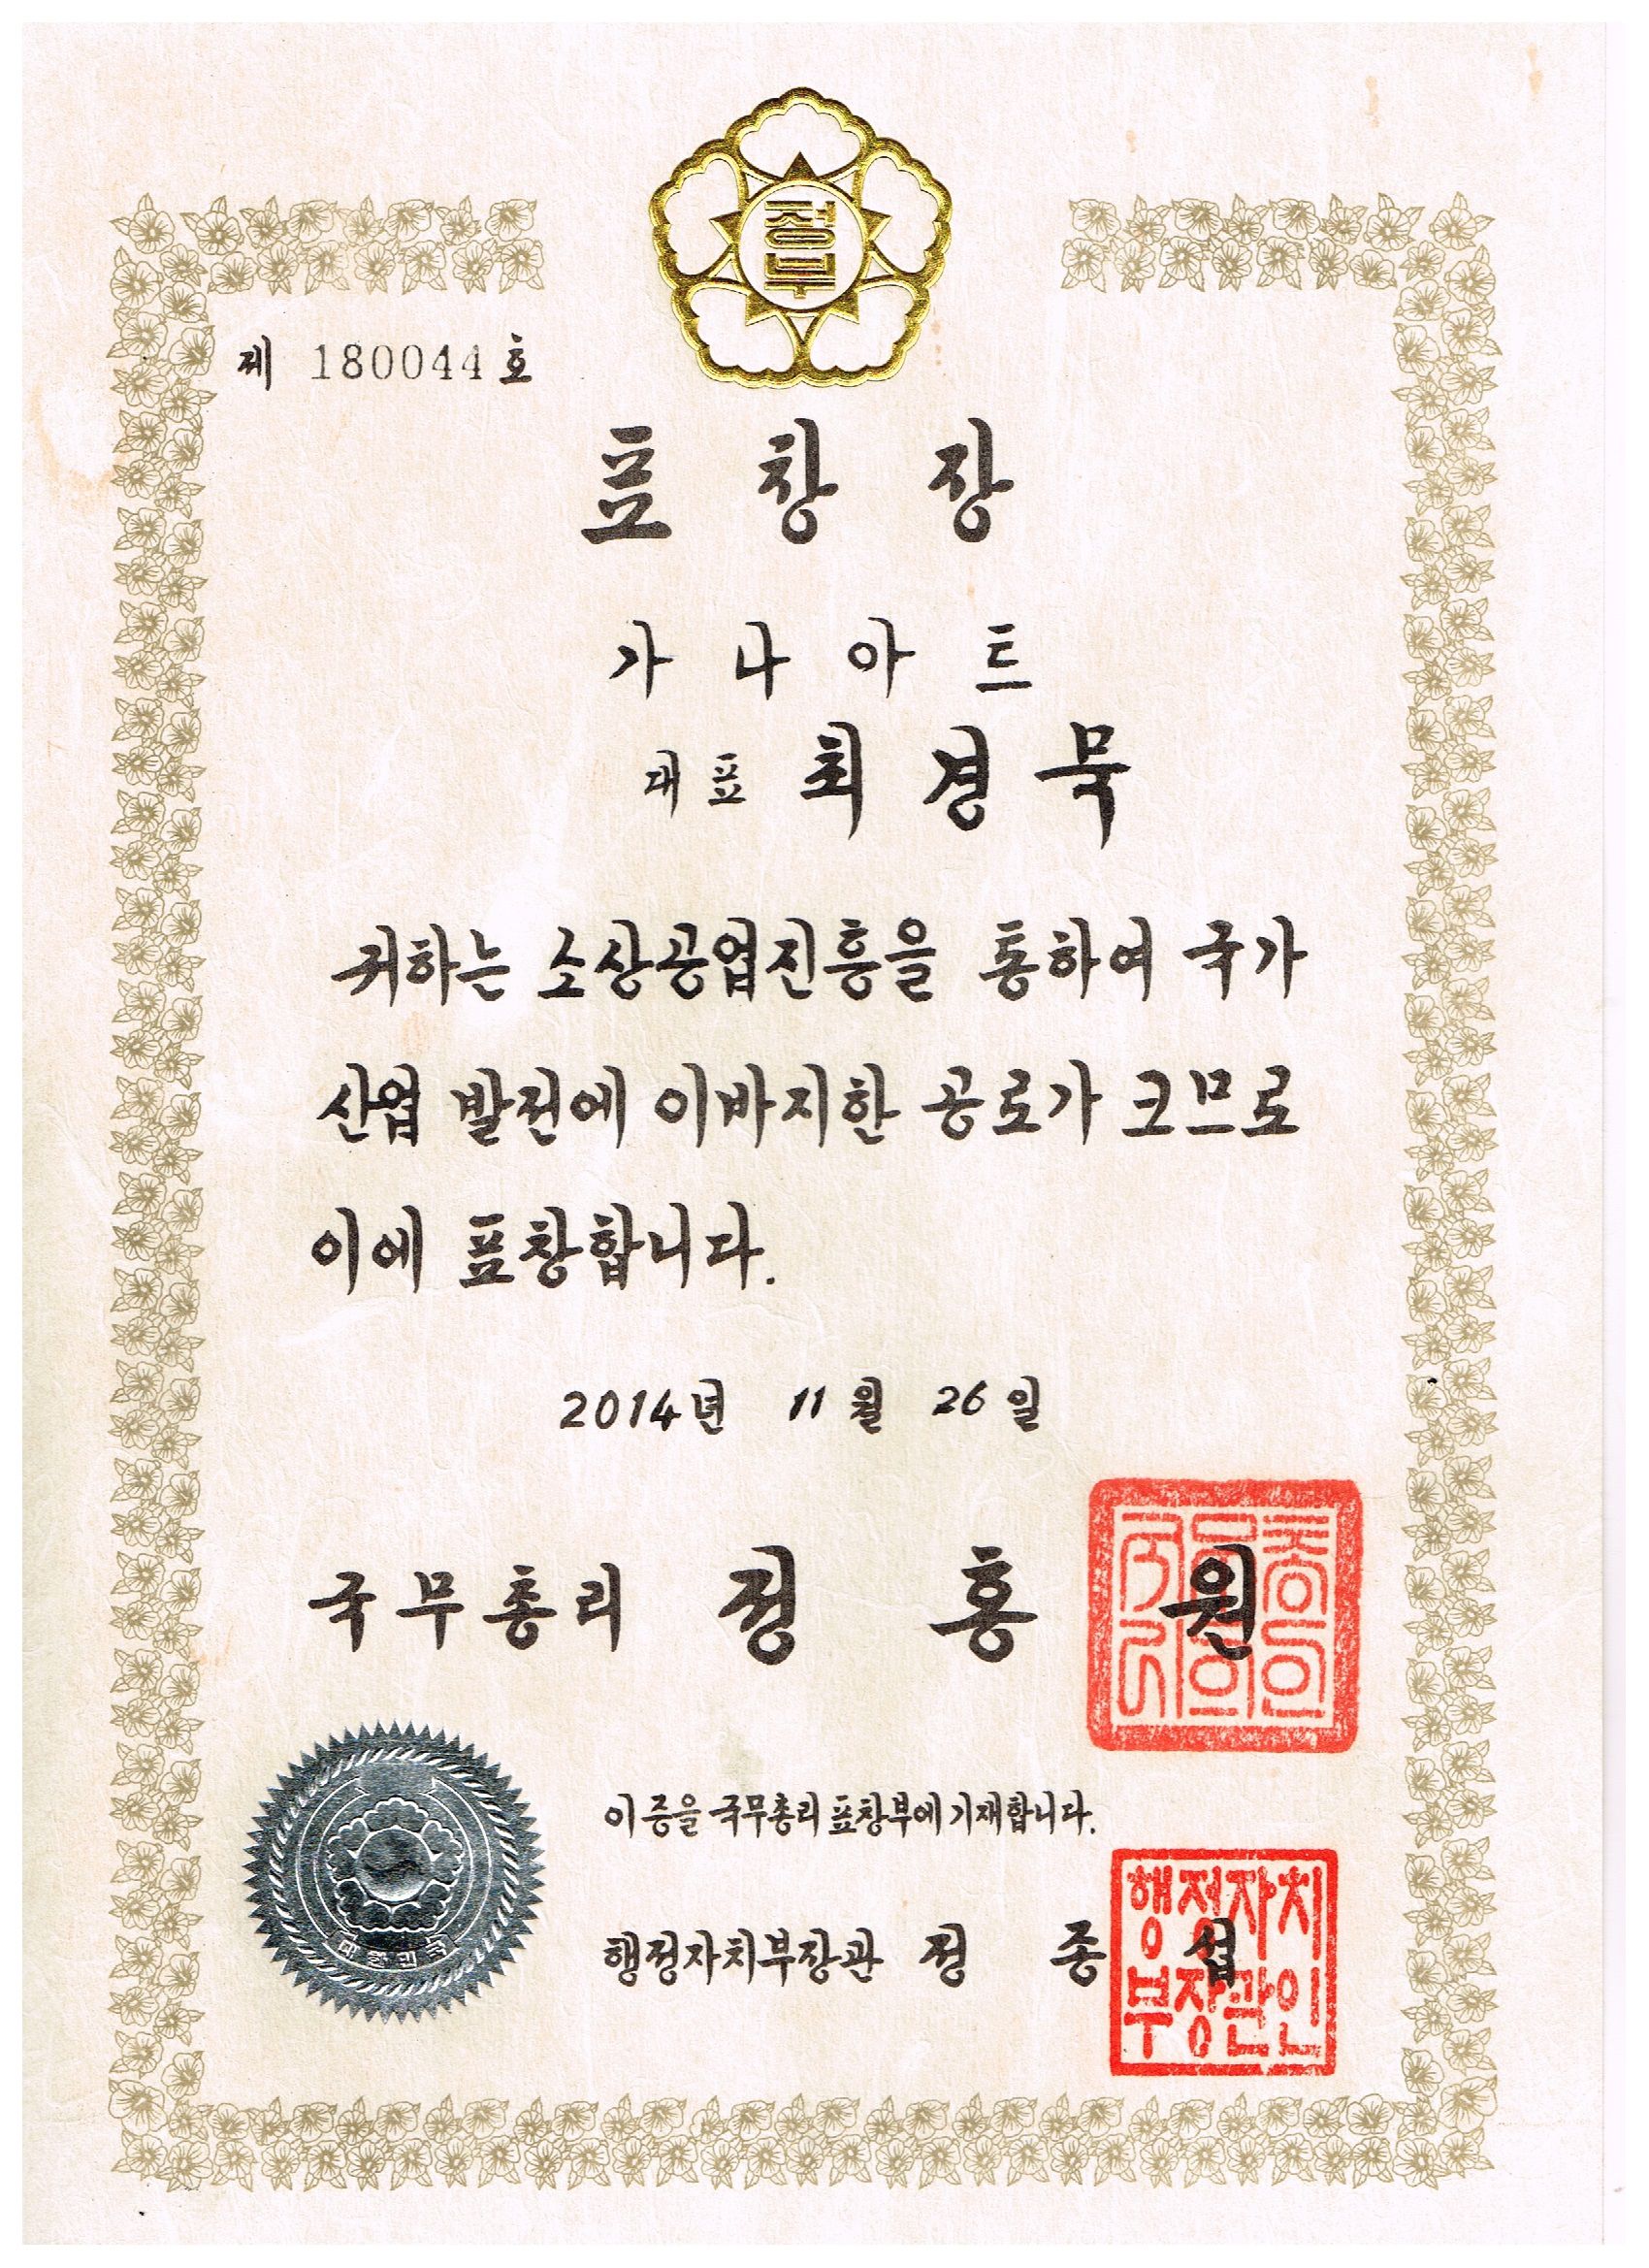 정부
제 180044 호
표 창 장
가 나 아 트
대표 최 경 묵
귀하는 소상공업진흥을 통하여 국가
산업 발전에 이바지한 공로가 크므로
이에 표창합니다.
2014년 11월 26일
국무총리 정 홍 원
이 증을 국무총리 표창부에 기재합니다.
행정자치부장관 정 종 섭
행정자치
부장관인
대한민국